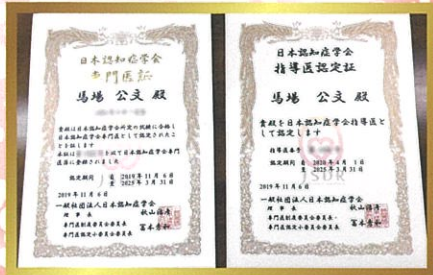 日本認知症学会
専門医証
馬場 公文 殿
貴殿は日本認知症学会所定の試験に合格し
日本認知症学会専門医として認定されたこ
とを証します
日本認知症学会専門
認定期間 自 2019年11月6日
至 2025年3月31日
2019年11月6日
一般社団法人日本認知症学会
理事長 秋山治彦
専門医制度委員会委員長
専門医認定小委員会委員長 冨本秀和
日本認知症学会
指導医認定証
馬場 公文 殿
貴殿を日本認知症学会指導医と
して認定します
指導医番号
認定期間 自 2020年4月1日
至 2025年3月31日
2019年11月6日
一般社団法人日本認知症学会
理事長 秋山治彦
専門医制度委員会委員長・
専門医認定小委員会委員長 冨本秀和